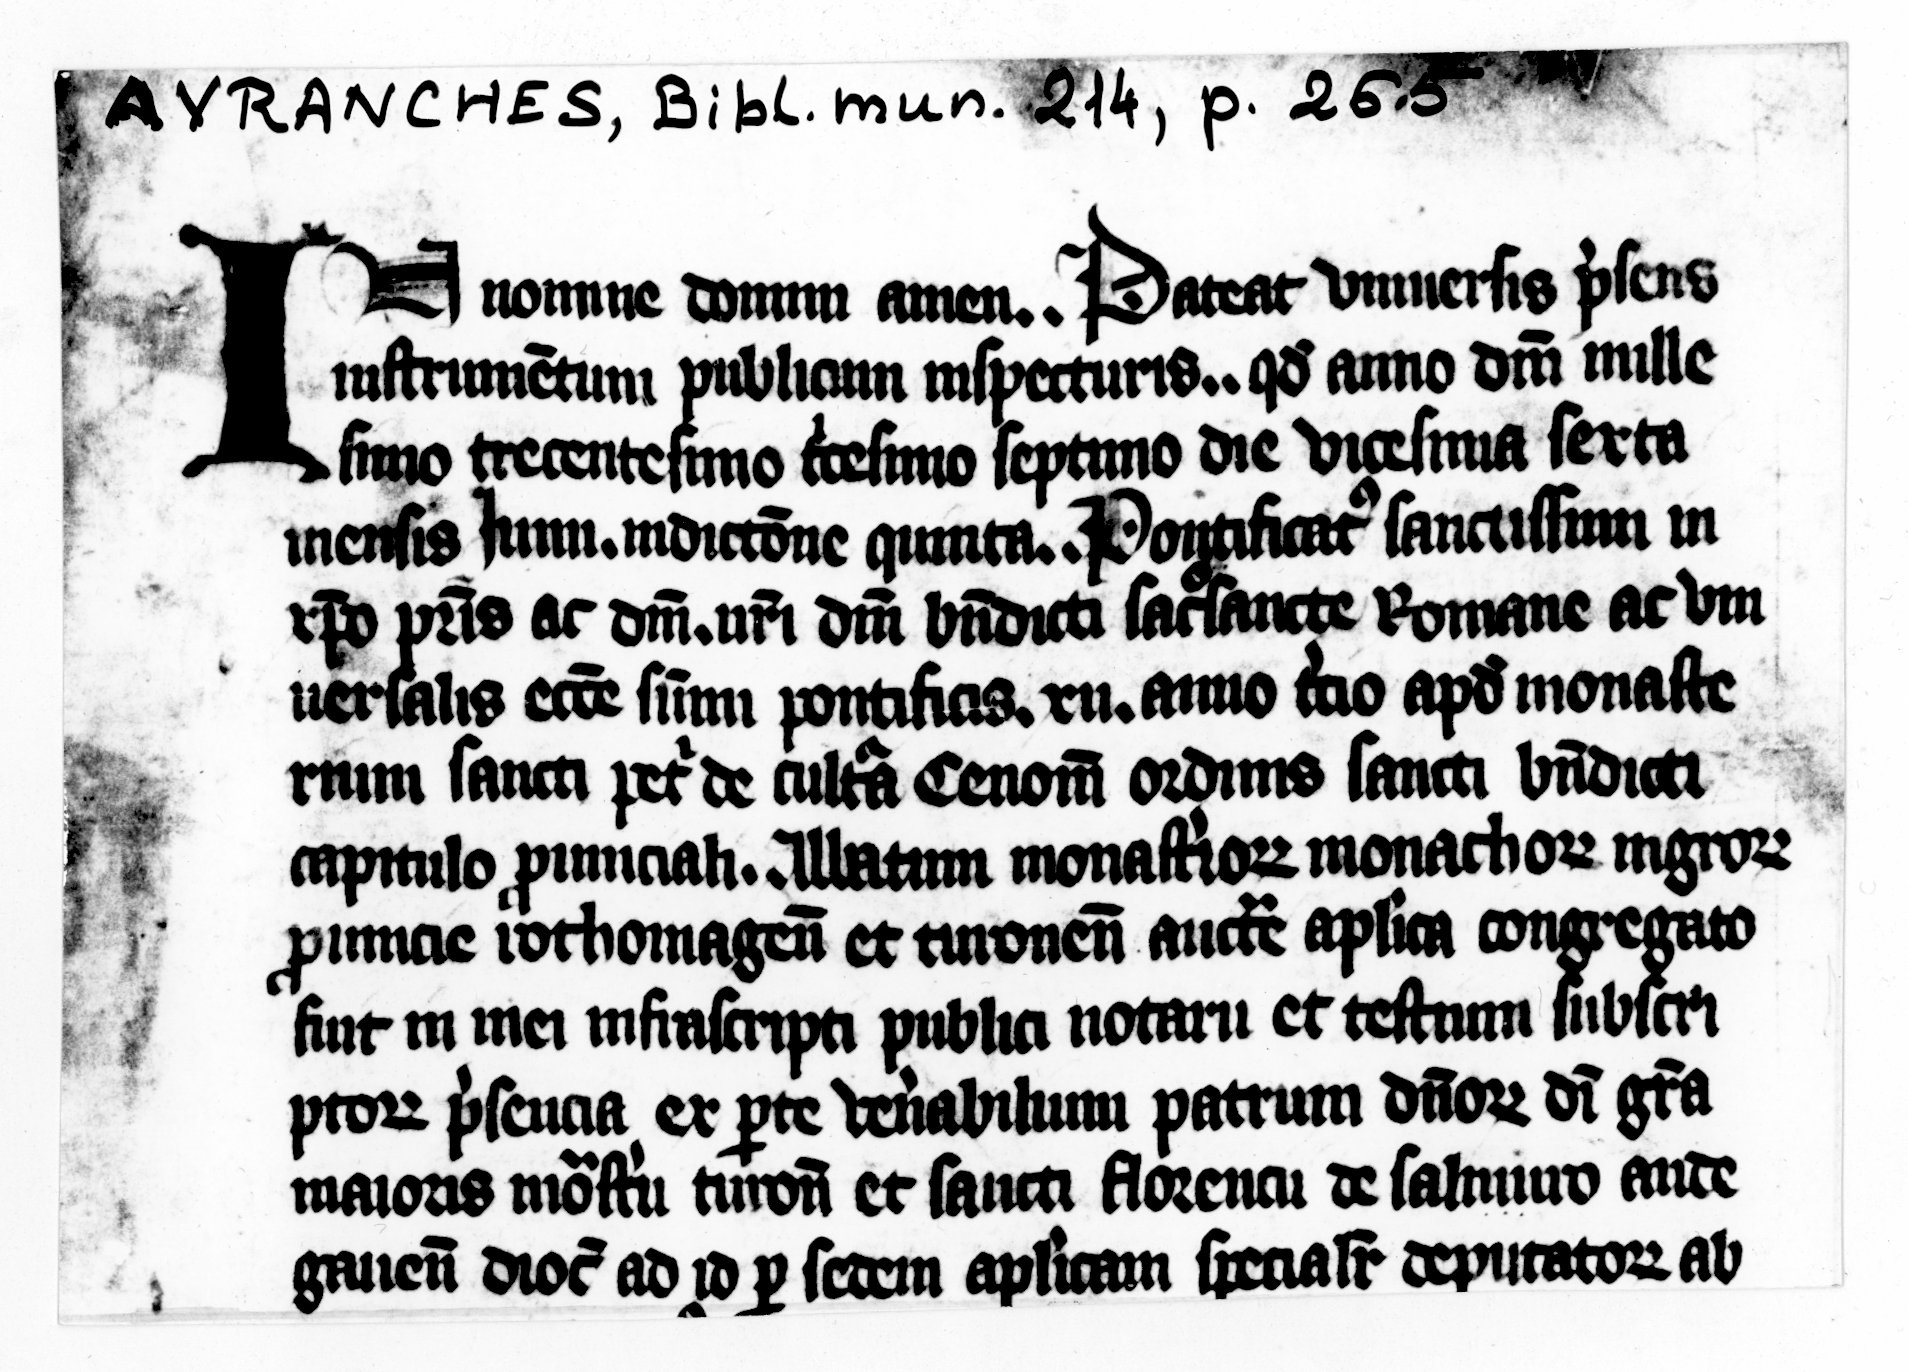 AVRANCHES, Bibl. mun. 214, p. 265
IN nomine domini amen.. Pateat vniuersis p̍sens
instrumētum publicum inspecturis.. qđ anno dm̄ mille
simo trecentesimo t̍cesimo septimo die vicesima sexta
mensis Junii. indictōne quinta.. Pontificatꝰ sanctissimi in
xp̄o pr̄is ac dm̄. nr̄i dm̄ bn̄dicti sac̊sancte Romane ac vni
uersalis ecc̄e sūmi pontificis. xii. anno t̍cio apđ monaste
rium sancti pet̍ de cultᷓa Cenom̄ ordinis sancti bn̄dicti
capitulo ꝓuinciali. Illatum monast̍ioꝝ monachoꝝ nigroꝝ
ꝓuincie rothomageñ et turoneñ auctᷓe apl̍ica congregato
fuit in mei infrascripti publici notarii et testium subscri
ptoꝝ p̍sencia ex ꝑte ven̍abilium patrum dn̄oꝝ dī gr̄a
maioris mōast̍ii turoñ et sancti florencii de salmuro ande
gaueñ dioc̄ ad id ꝑ sedem apl̍icam specialr̄ deputatoꝝ ab